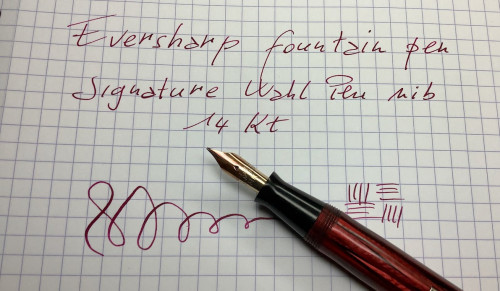 Eversharp fountain pen
Signature Wahl Pen nib
14 Kt